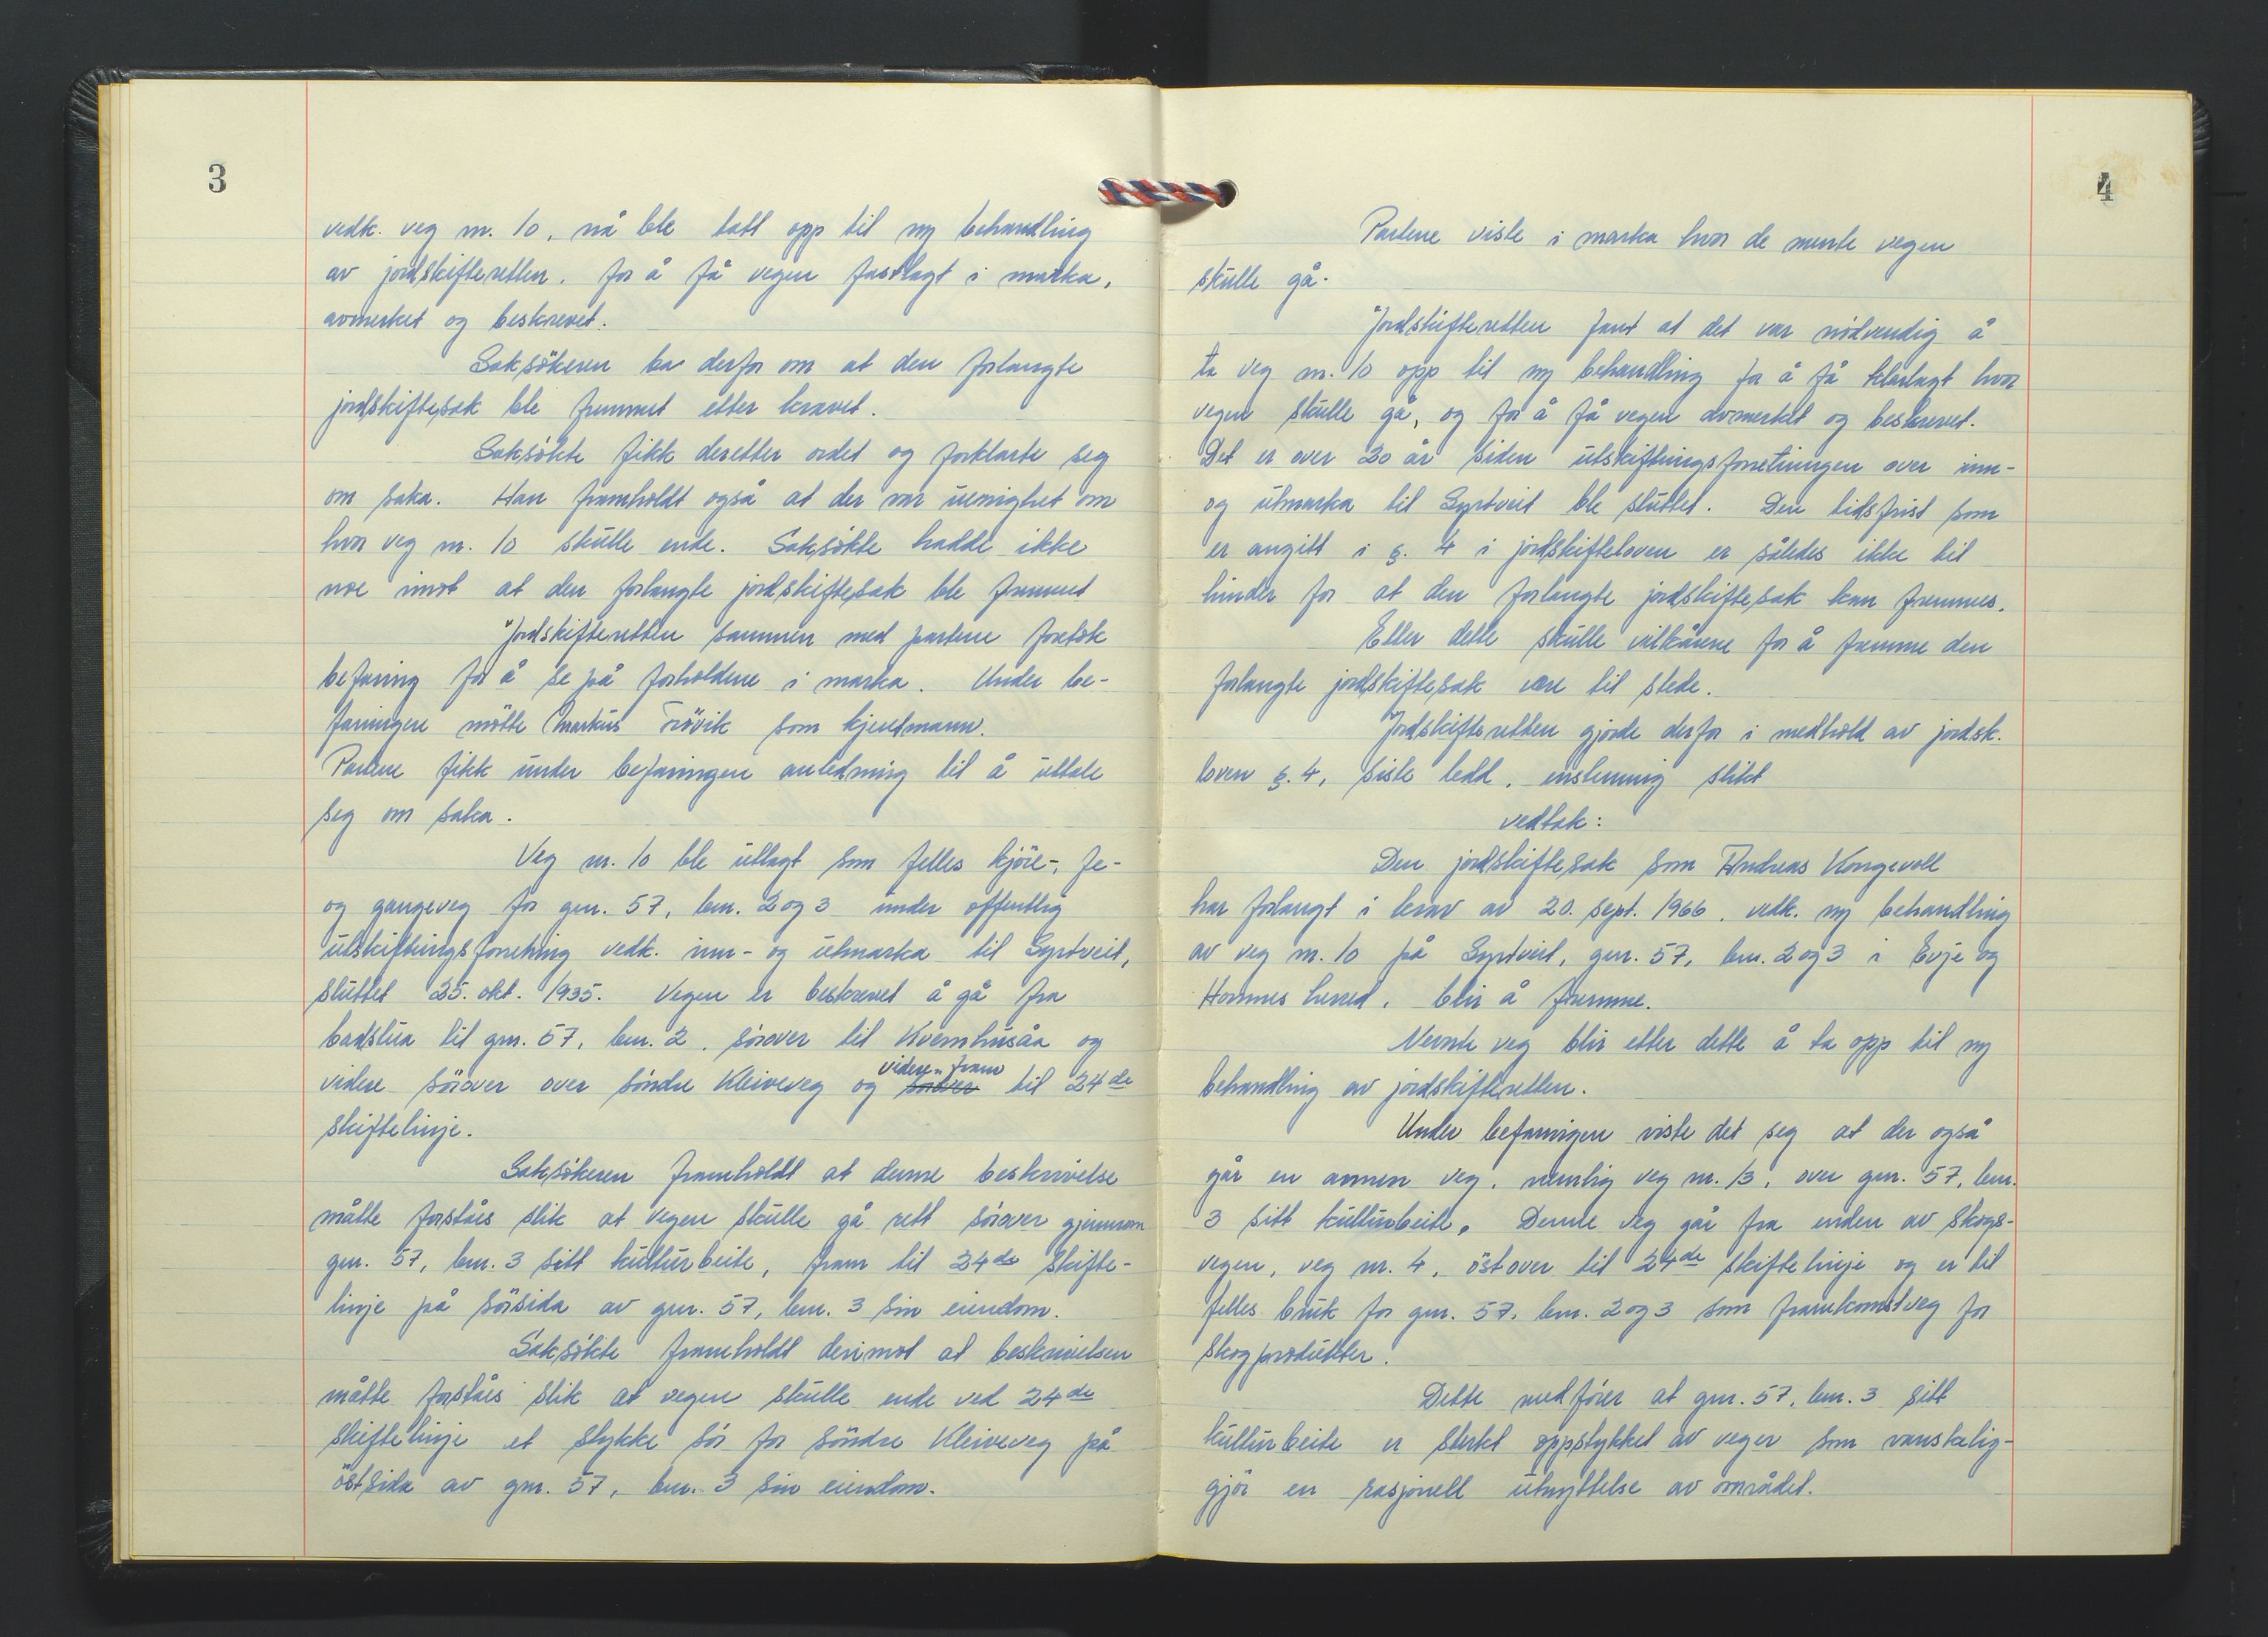 3
vedk. veg nr. 10, nå ble tatt opp til ny behandling
av jordskifteretten, for å få vegen fastlagt i marka,
avmerket og beskrevet.
Saksökeren ba derfor om at den forlangte
jordskiftesak ble fremmet etter kravet.
Saksökte fikk deretter ordet og forklarte seg
om saka. Han framholdt også at der var uenighet om
hvor veg nr. 10 skulle ende. Saksökte hadde ikke
noe imot at den forlangte jordskiftesak ble fremmet
Jordskifteretten sammen med partene foretok
befaring for å se på forholdene i marka. Under be-
faringen mötte Markus Trövik som kjentmann.
Partene fikk under befaringen anledning til å uttale
seg om saka.
Veg nr. 10 ble utlagt som felles kjöre-, fe-
og gangeveg for gnr. 57, bnr. 2 og 3 under offentlig
utskiftningsforretning vedk. inn- og utmarka til Syrtveit,
sluttet 25. okt. 1935. Vegen er beskrevet å gå fra
badstua til gnr. 57, bnr. 2, sörover til Kvernhusåa og
videre fram
videre sörover over söndre Kleiveveg og sörover til 24de
skiftelinje.
Saksökeren framholdt at denne beskrivelse
måtte forståes slik at vegen skulle gå rett sörover gjennom
gnr. 57, bnr. 3 sitt kulturbeite, fram til 24de skifte-
linje på sörsida av gnr. 57, bnr. 3 sin eiendom.
Saksökte framholdt derimot at beskrivelsen
måtte forståes slik at vegen skulle ende ved 24de
skiftelinje et stykke sör for söndre Kleiveveg på
östsida av gnr. 57, bnr. 3 sin eiendom.
4
Partene viste i marka hvor de mente vegen
skulle gå.
Jordskifteretten fant at det var nödvendig å
ta veg nr. 10 opp til ny behandling for å få klarlagt hvor
vegen skulle gå, og for å få vegen avmerket og beskrevet.
Det er over 20 år siden utskiftningsforretningen over inn-
og utmarka til Syrtveit ble sluttet. Den tidsfrist som
er angitt i §. 4 i jordskifteloven er således ikke til
hinder for at den forlangte jordskiftesak kan fremmes.
Etter dette skulle vilkårene for å fremme den
forlangte jordskiftesak være til stede.
Jordskifteretten gjorde derfor i medhold av jordsk.
loven §. 4, siste ledd, enstemmig slikt
vedtak:
Den jordskiftesak som Andreas Kongevoll
har forlangt i krav av 20. sept. 1966, vedk. ny behandling
av veg nr. 10 på Syrtveit, gnr. 57, bnr. 2 og 3 i Evje og
Hornnes herred, blir å fremme.
Nevnte veg blir etter dette å ta opp til ny
behandling av jordskifteretten.
Under befaringen viste det seg at der også
går en annen veg, nemlig veg nr. 13, over gnr. 57, bnr.
3 sitt kulturbeite. Denne veg går fra enden av skogs-
vegen, veg nr. 4, östover til 24de skiftelinje og er til
felles bruk for gnr. 57, bnr. 2 og 3 som framkomstveg for
skogprodukter.
Dette medförer at gnr. 57, bnr. 3 sitt
kulturbeite er sterkt oppstykket av veger som vanskelig-
gjör en rasjonell utnyttelse av området.